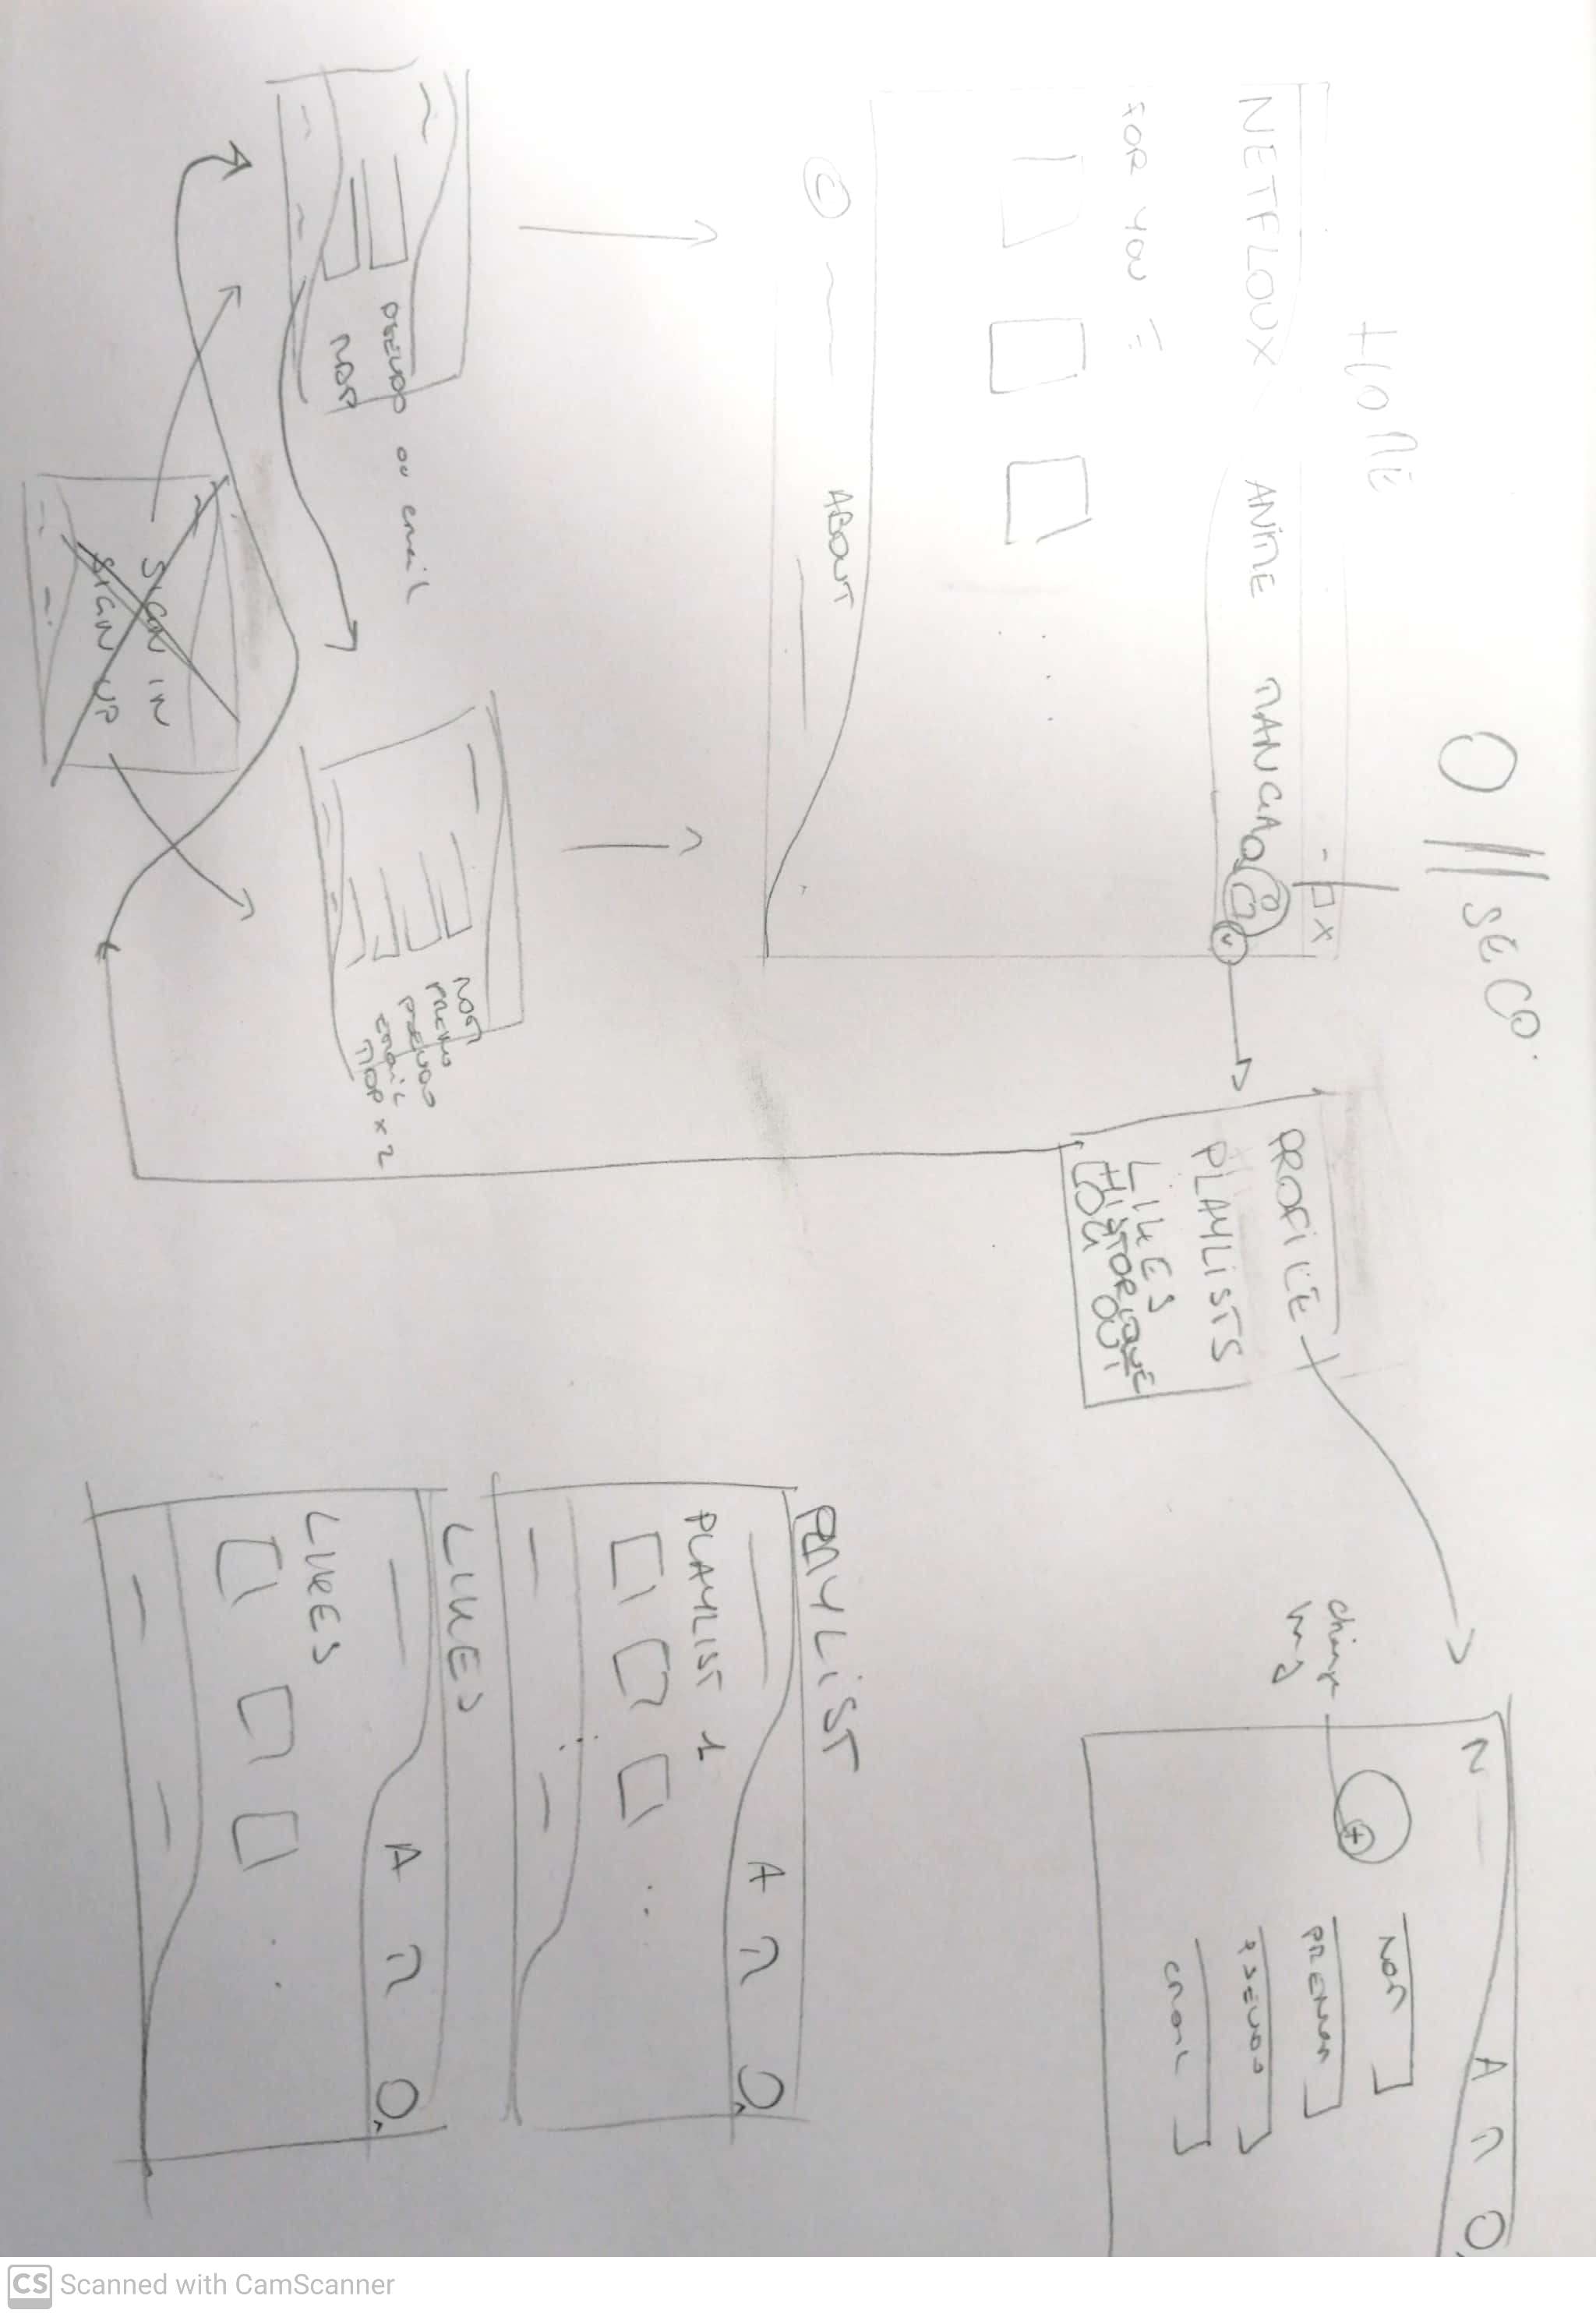 SECO.
HOME
- □ X
NETFLOUX ANIME MANGA
FOR YOU =
© ABOUT
PROFILE
PLAYLISTS
LIKES
HISTORIQUE
LOG OUT
N A M
change
img
NOM
PRENOM
PSEUDO
email
PLAYLIST
A M
PLAYLIST 1
LIKES
A M
LIKES
PSEUDO ou email
NOM
PSEUDO
email
MDP x 2
SIGN IN
SIGN UP
CS Scanned with CamScanner